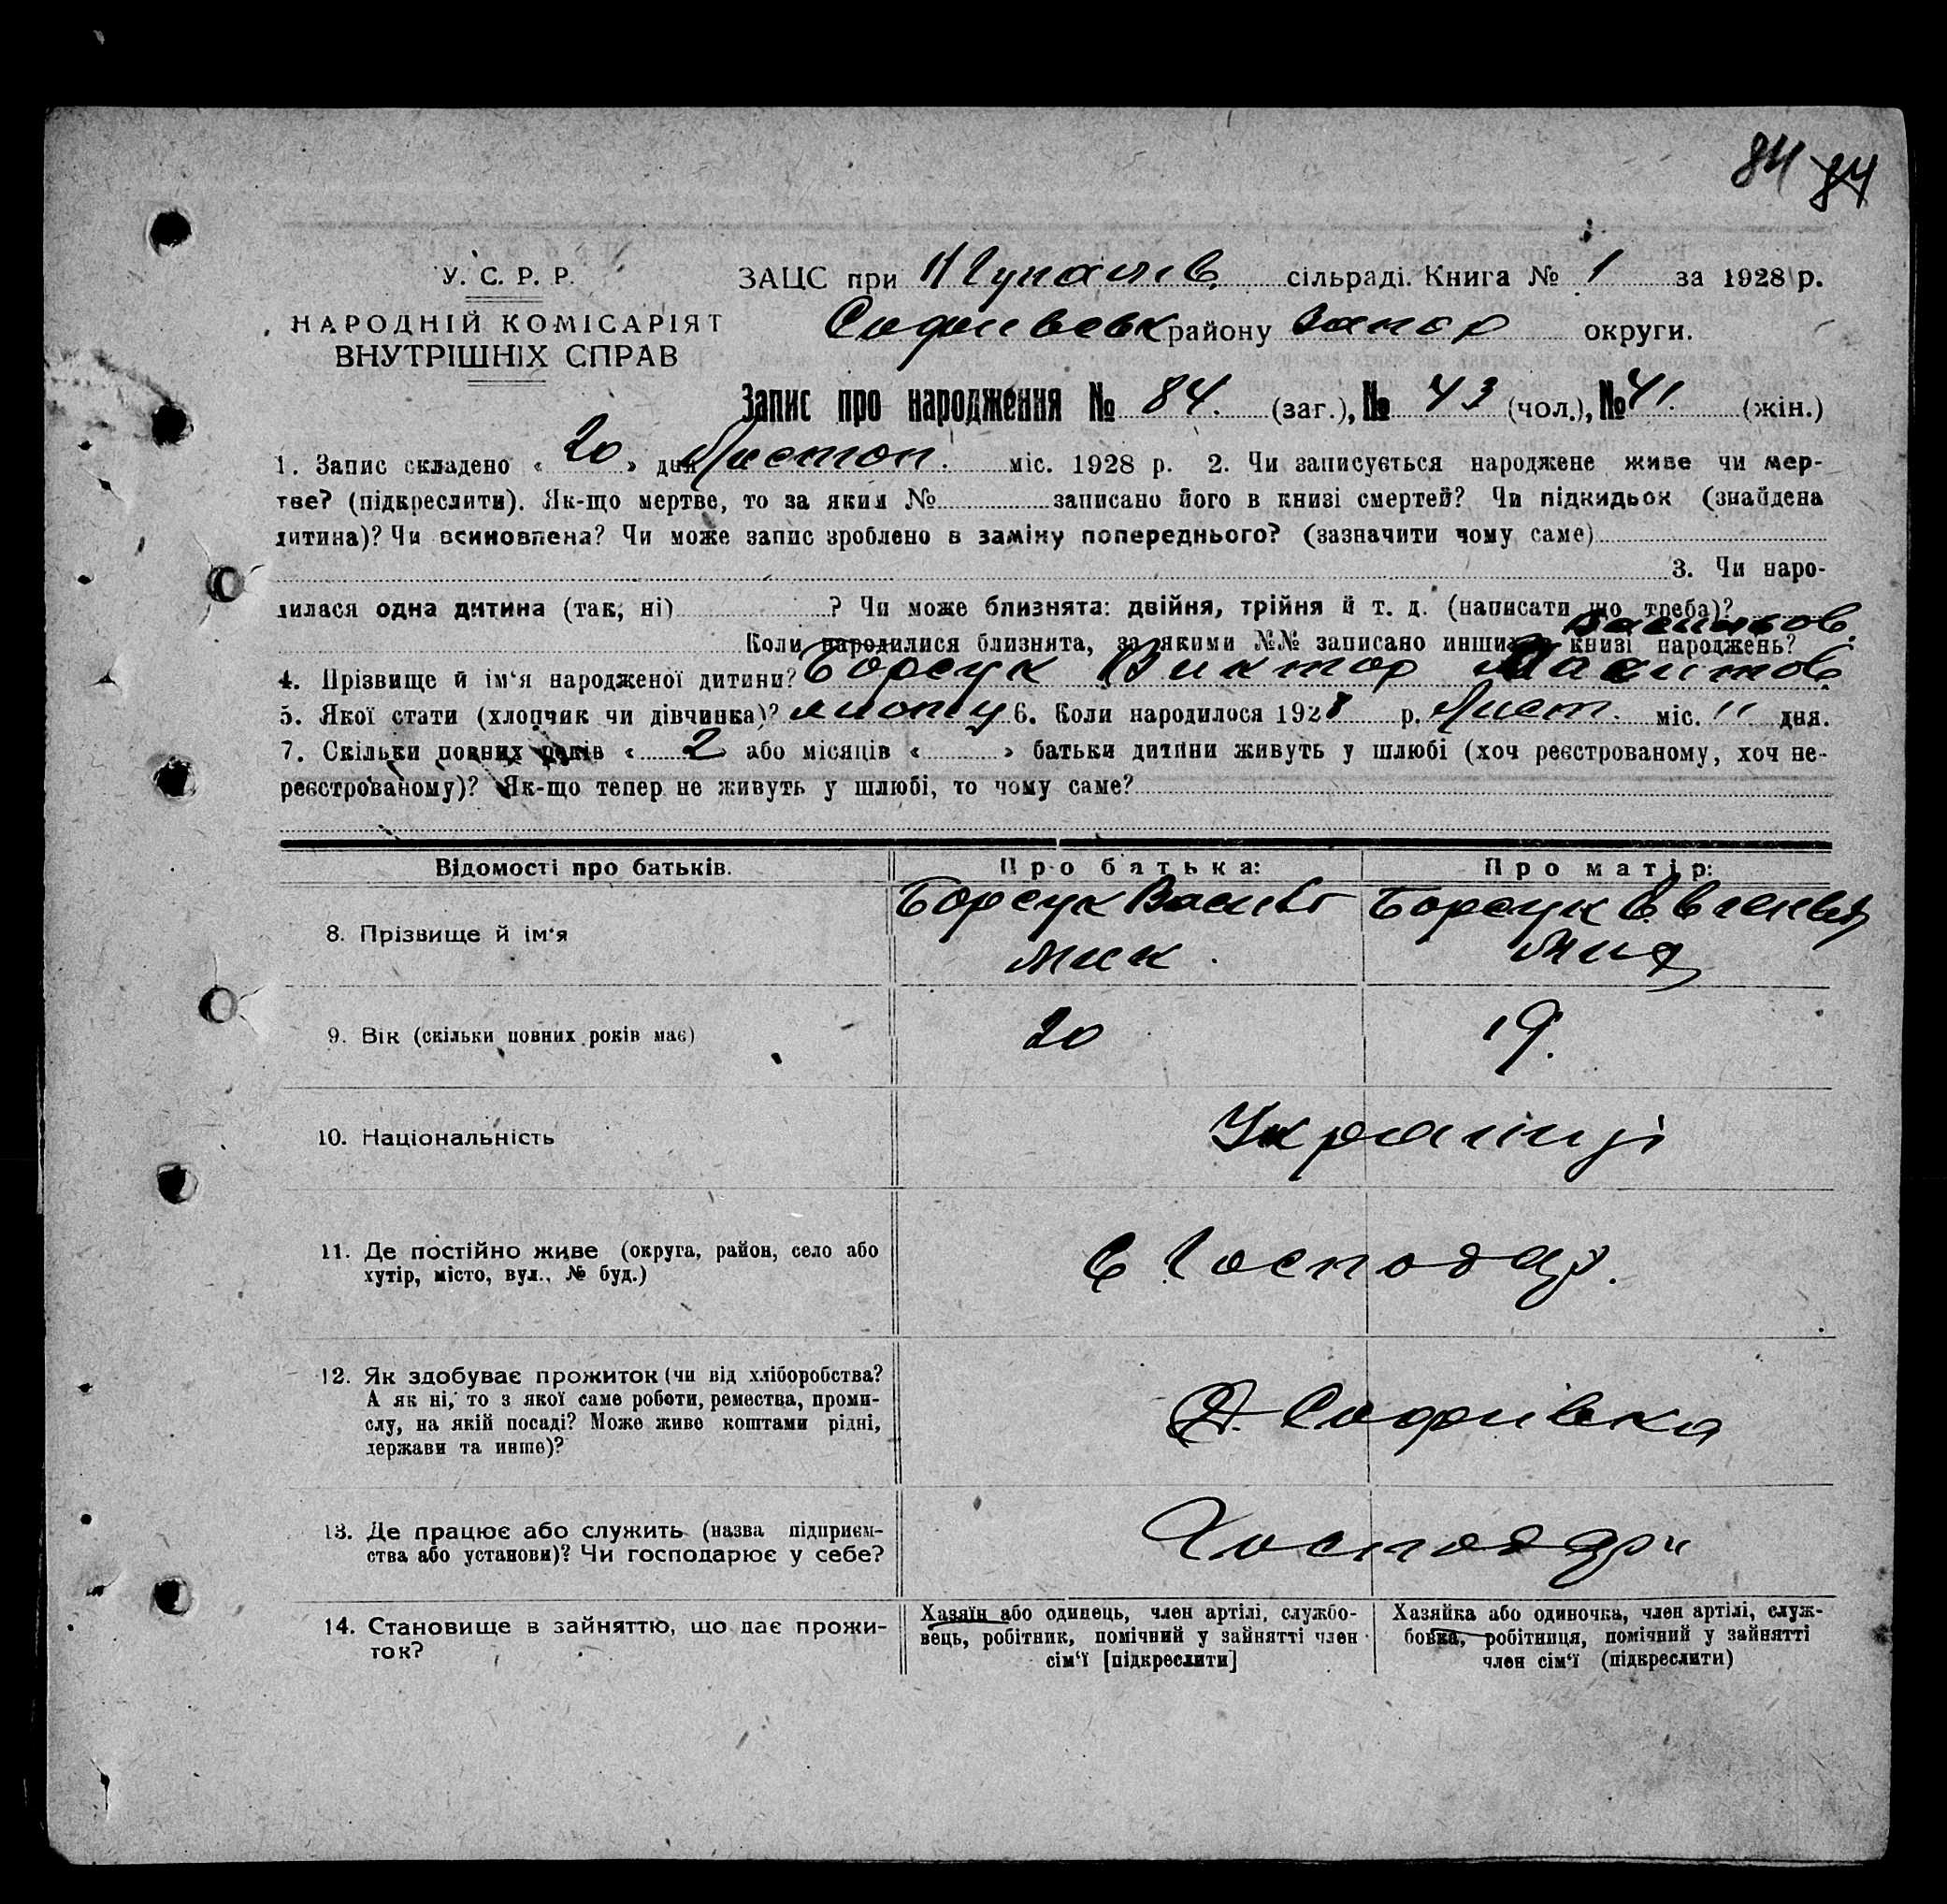 84 84
У. С. Р. Р.
НАРОДНІЙ КОМІСАРІЯТ
ВНУТРІШНІХ СПРАВ
ЗАЦС при сільраді. Книга № 1 за 1928 р.
Софиевськ району Запор округи.
Запис про народження № 84. (заг.), № 43 (чол.), № 41. (жін.)
1. Запис складено « 20 » дня Листоп. міс. 1928 р. 2. Чи записується народжене живе чи мер-
тве? (підкреслити). Як-що мертве, то за яким № записано його в книзі смертей? Чи підкидьок (знайдена
дитина)? Чи всиновлена? Чи може запис зроблено в заміну попереднього? (зазначити чому саме)
3. Чи наро-
дилася одна дитина (так, ні) ? Чи може близнята: двійня, трійня й т. д. (написати що треба)?
Коли народилися близнята, за якими №№ записано инших в книзі народжень?
4. Прізвище й ім'я народженої дитини? Борсук Виктор
5. Якої стати (хлопчик чи дівчинка)? 6. Коли народилося 1928 р. Лист. міс. 11 дня.
7. Скільки повних років « 2 » або місяців « » батьки дитини живуть у шлюбі (хоч реєстрованому, хоч не-
реєстрованому)? Як-що тепер не живуть у шлюбі, то чому саме?
Відомості про батьків. Про батька: Про матір:
8. Прізвище й ім'я Борсук Борсук
9. Вік (скільки повних років має) 20 19.
10. Національність Українці
11. Де постійно живе (округа, район, село або
хутір, місто, вул., № буд.) Господар.
12. Як здобуває прожиток (чи від хліборобства?
А як ні, то з якої саме роботи, ремества, проми-
слу, на якій посаді? Може живе коштами рідні,
держави та инше)? Софиівка
13. Де працює або служить (назва підприєм-
ства або установи)? Чи господарює у себе? Господари
14. Становище в зайняттю, що дає прожи-
ток?
Хазяїн або одинець, член артілі, службо-
вець, робітник, помічний у зайнятті член
сім'ї [підкреслити]
Хазяйка або одиночка, член артілі, служ-
бовка, робітниця, помічний у зайнятті
член сім'ї (підкреслити)